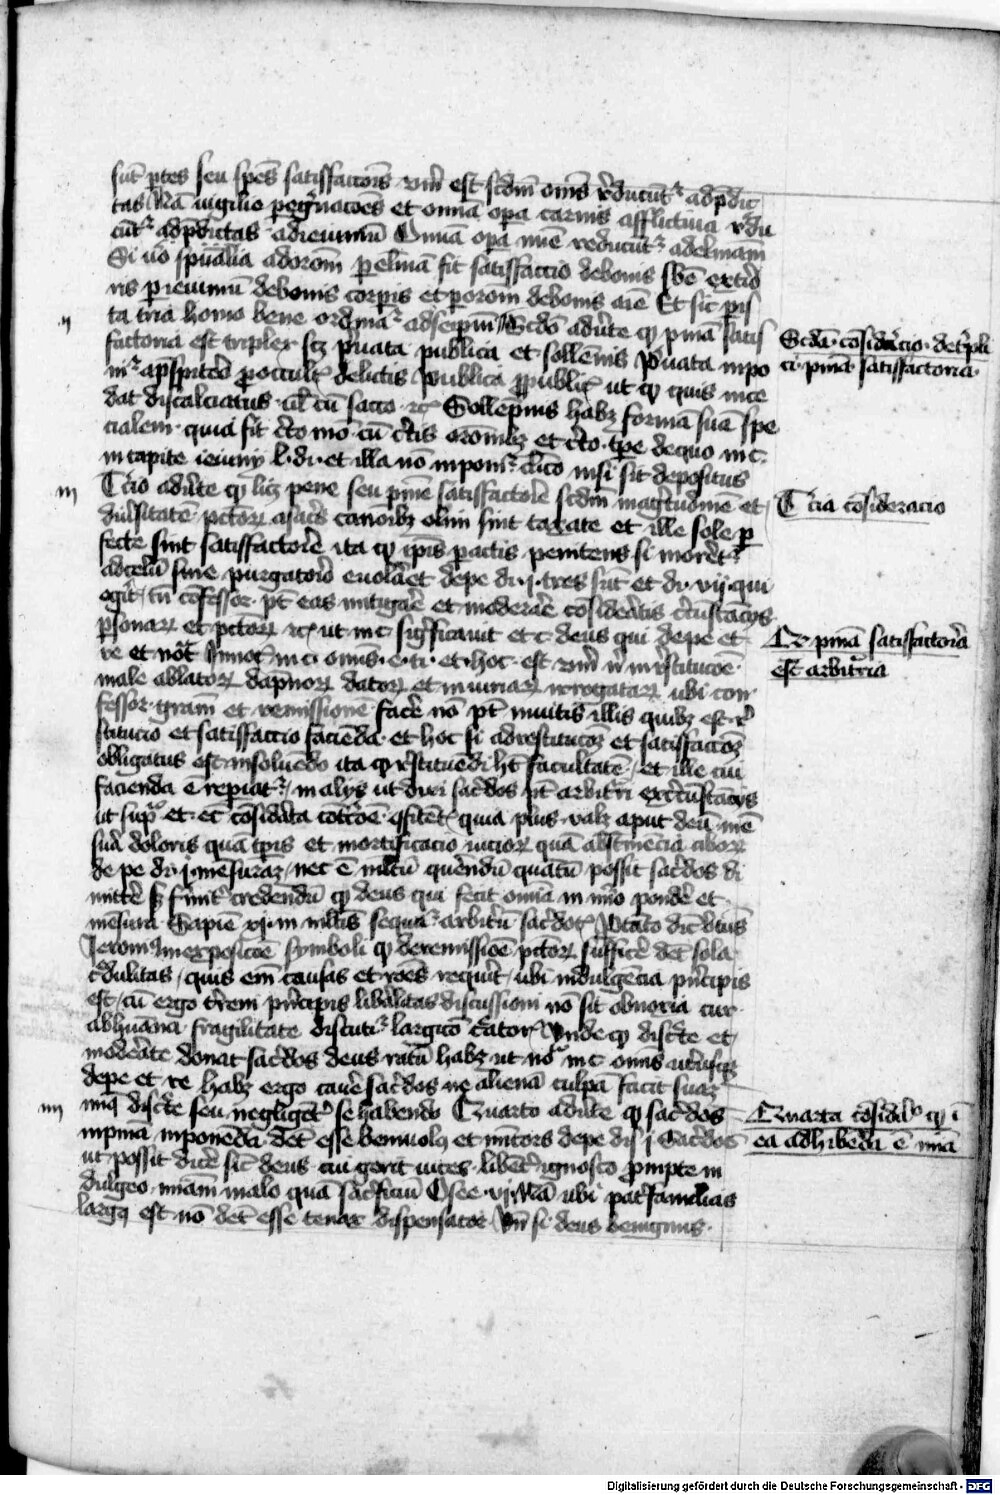 sūt ptes seu spēs satisfactōis vm̄ est scdm oms rducūtr adpdic
tas Nā vigilie pegrnacōes et omīa opa carnis afflictiua rdu
cūtr adpdictas adieiuniū Omīa opa mie reducūtr adelmām
Si vō spūalia adorōm p elmā fit satisfaccio debonis sbe exterio
ris p ieiuniū debonis corpis et p orom debonis aīe Et sic p is
ta tria homo bene ordinatr adseipm Scdo aduerte qp pma satis
factoria est triplex scz puata publica et sollennis Puata inpo
nitr apspiterō p occultis delictis Publica p publicis ut qp quis ince
dat discalciatus vl cū sacco rc Sollepnis habz formā suā spe
cialem quia fit cto mō cū ctis orōnibz et cto tpe dequo in c
in capite ieiunij l di et illa nō inponitr clico nisi sit depositus
Tcio aduerte qp licz pene seu pnīe satisfactorie scdm magnitudinē et
diusitate pctorr asacris canonibz olim sint taxate et ille sole p
fecte sint satisfactorie ita qp ipis pactis penitens si moretr
adcelū sine purgatorio euolaret depe di j tres sūt et di vij qui
egit tn confessor pt eas mitigare et moderare cōsideratis circūstācijs
psonarr et pctorr rc ut in c significauit et c deus qui depe et
re et not Innoc in c omis e ti et hoc est vm ni in restitucōe
male ablatorr dapnorr datorr et iniuriarr irrogatarr ubi con
fessor gram et remissione facere nō pt inuitis illis quibz est re
stitucio et satisfaccio facienda et hoc si adrestitucōz et satisfaccōz
obligatus est insoluendo ita qp restituendi ht facultatē et ille cui
facienda ē repiatr in alijs ut dixi sacdos pt arbitri ex circūstācijs
ut supa et ec cōsidata cōtricōe cfitētis quia plus valz aput deū mē
sura doloris quā tpis et mortificacio vicior quā abstinēcia cibor
de pe di j mensuraz nec ē multū querendū quātū possit sacdos di
mittere sz firmitr credendū qp deus qui fecit omīa in nūo pondere et
mēsura Sapiē xj in multis sequitr arbitriū sacdotis Ptāto dic btus
Jeronimus in exposicōe symboli qp deremissiōe pctorr sufficere det sola
credulitas quis em causas et rōes requirit ubi indulgēcia principis
est cū ergo terreni principis libalitas discussioni nō sit obnoxia cur
abhumana fragilitate discutitr largicio creatoris Vnde qp discrete et
moderate donat sacdos deus ratū habz ut no in c omnis utriusqz
depe et re habz ergo cauere sacdos ne alienā culpā faciat suaz
minus discrete seu negligēter se habendo Quarto aduerte qp sacdos
inpnīa inponēda det esse beniuolus et miticors depe dis j Sacdos
ut possit dicere sic deus cui gerit vices libēter ignosco prompte in
dulgeo miam malo quā sacrificiū Osee vj Nā ubi paterfamilias
largus est nō det esse tenax dispensator Vn si deus benignus
ij
Scda cōsideracio de tripli
ci pnīa satisfactoria
iij
Tcia cōsideracio
Qp pnīa satisfactoria
est arbitraria
iiij
Quarta cōsideraco qp i
ea adhibeda ē mia
Digitalisierung gefördert durch die Deutsche Forschungsgemeinschaft - DFG